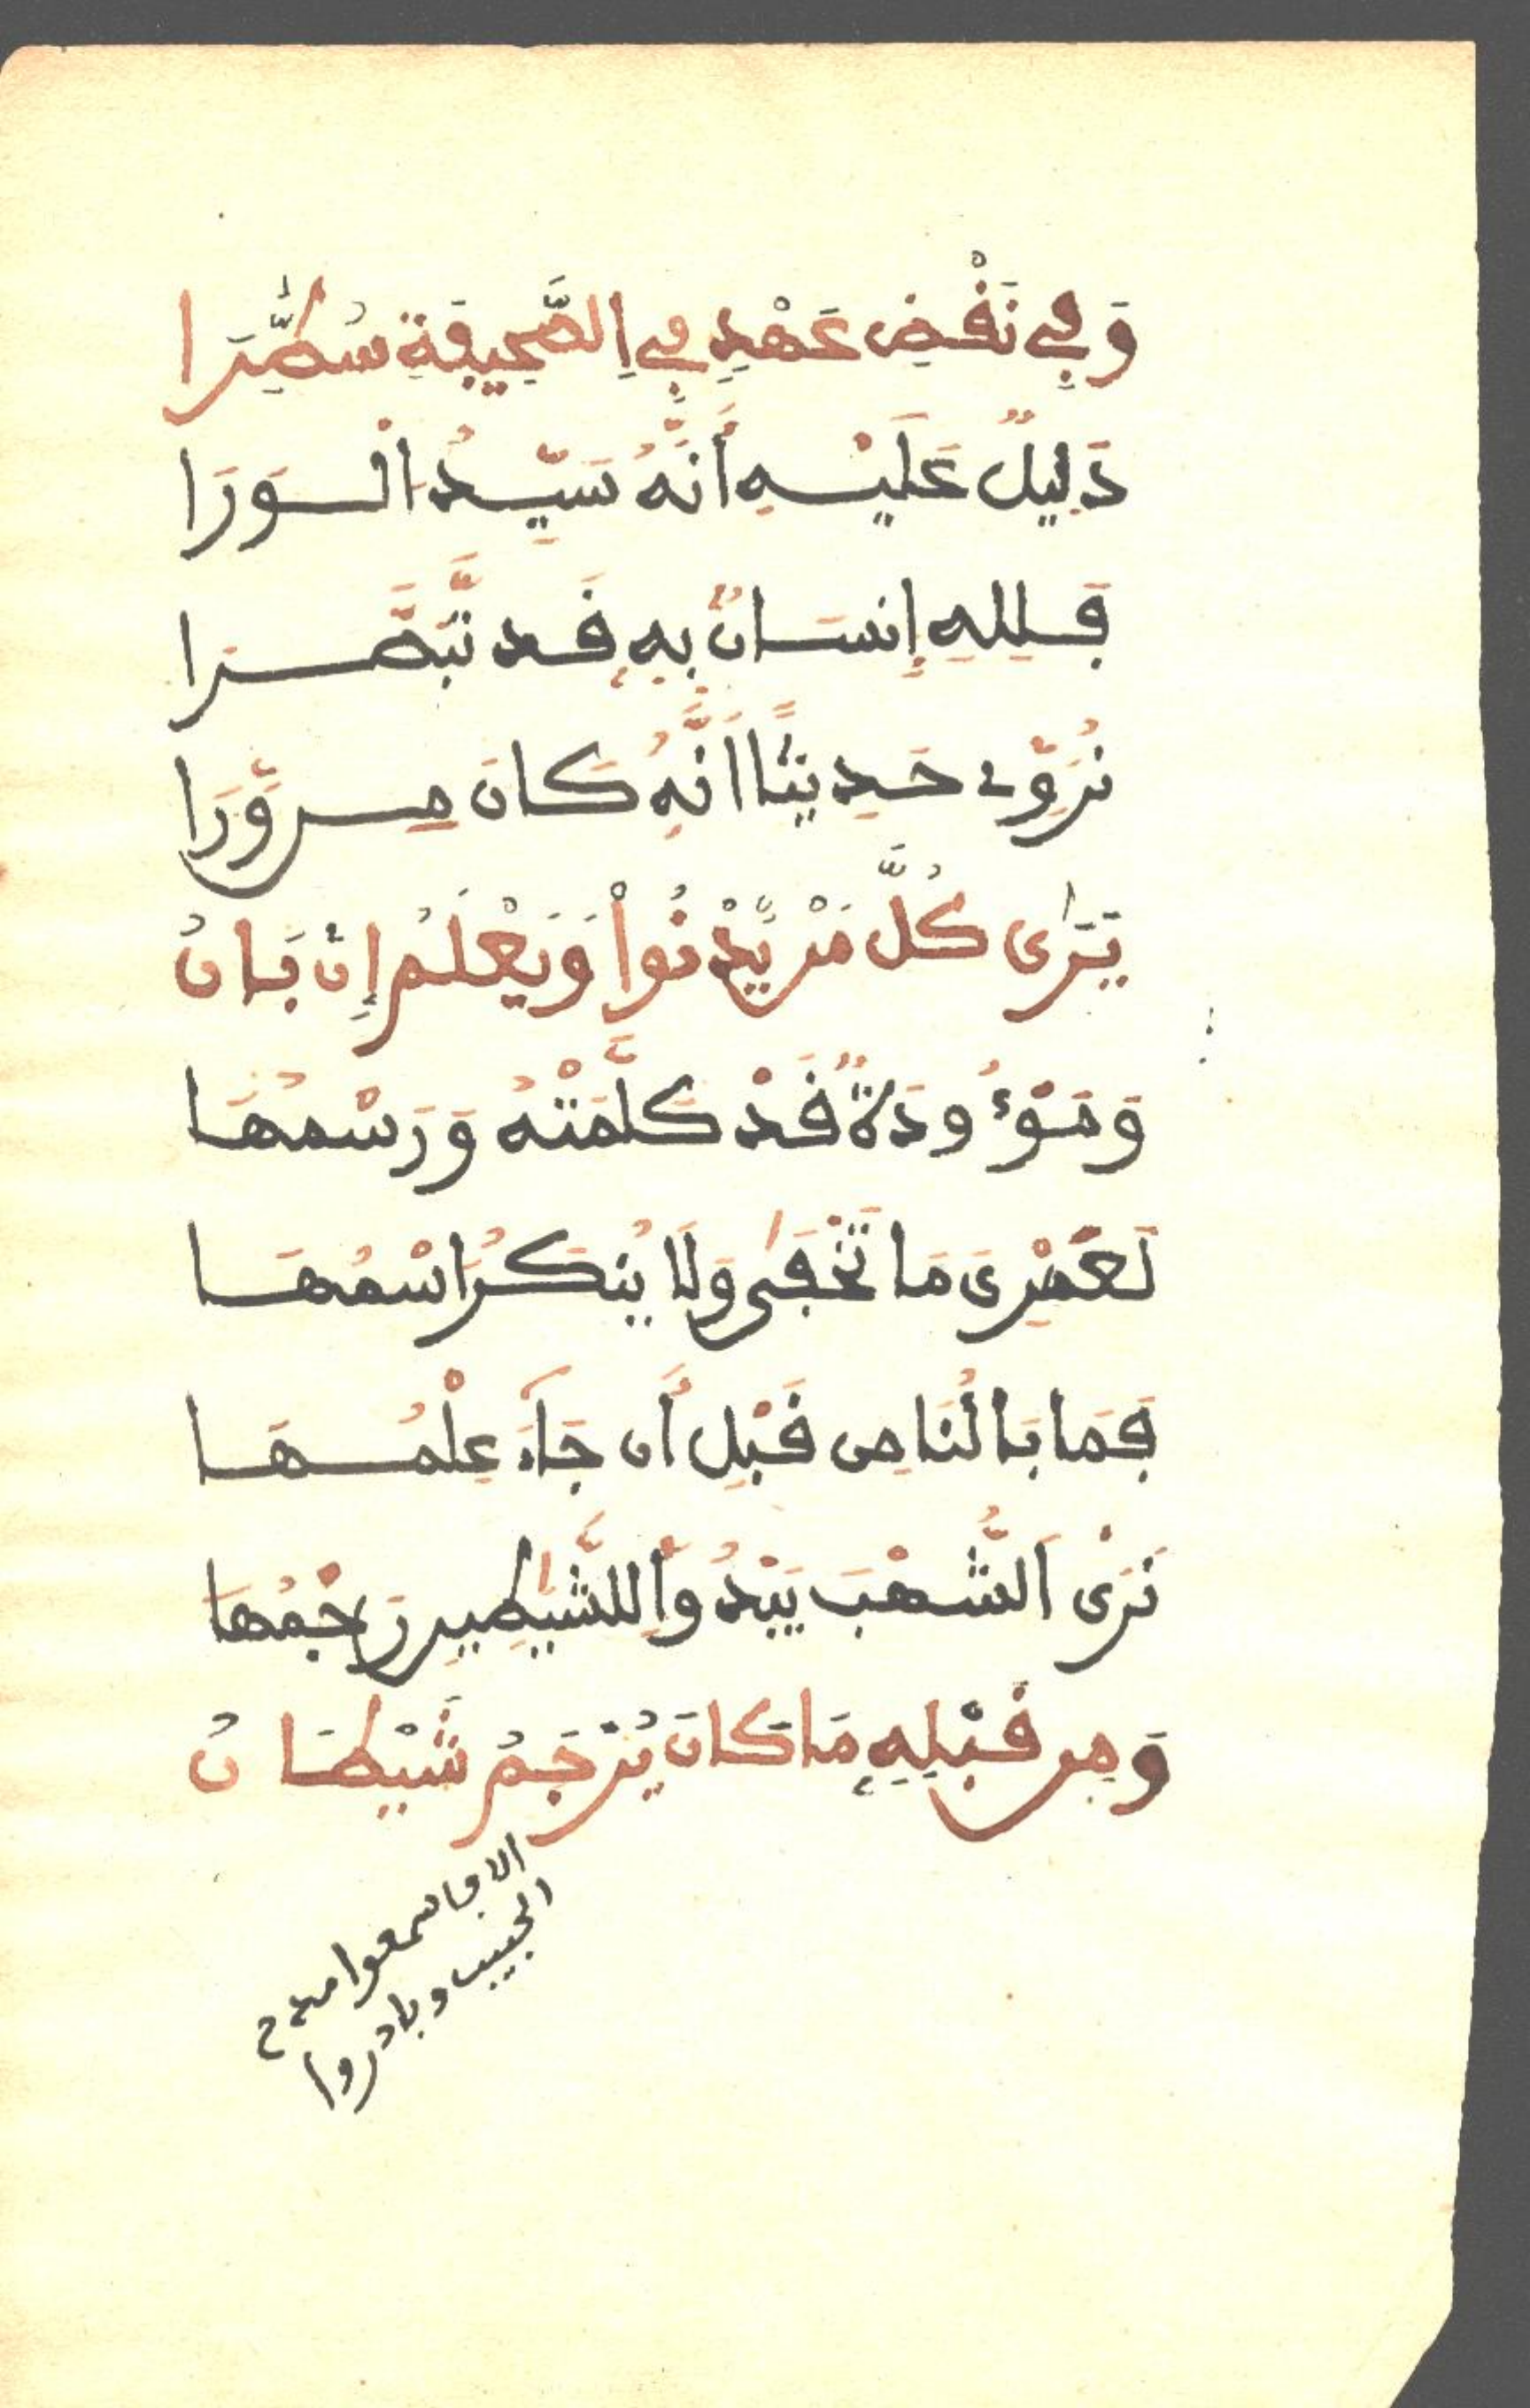 وَفِي نَقْضِ عَهْدٍ فِي اِلصَّحِيفَةِ سُطِّرَا
دَلِيلٌ عَلَيْهِ أَنَّهُ سَيِّدُ الْوَرَا
فَلِلهِ إِنسَانٌ بِهِ قَد تَّبَصَّرَا
نُرَوِّے حَدِيثًا اَنَّهُ كَانَ مِن وَّرَا
يَرَىٰ كُلَّ مَنْ يَّدْنُواْ وَيَعْلَمُ إِن بَانُ
وَمَوْءُودَةٌ قَدْ كَلَّمَتْهُ وَرَسْمُهَا
لَعَمْرِى مَا تَخْفَىٰ وَلَا يُنكَرُ اسْمُهَا
فَمَا بَالُنَا مِن قَبْلِ أَن جَآءَ عِلْمُهَا
نَرَى اَلشُّهْبَ يَبْدُواْ لِلشَّيَٰطِينِ رَجْمُهَا
وَمِن قَبْلِهِ مَا كَانَ يُرْجَمُ شَيْطَانُ
الا فاسمعوا مدح
الحبيب وبادروا